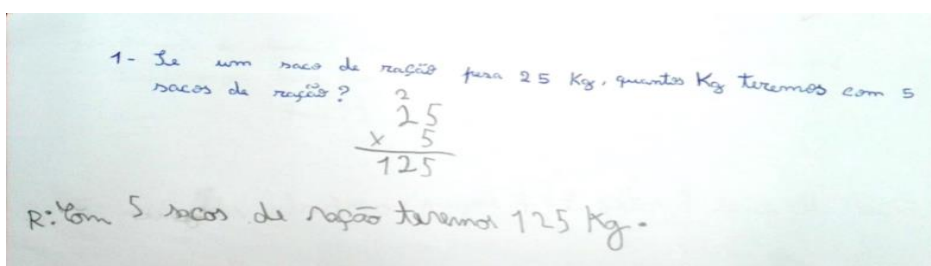 1- Se um saco de ração pesa 25 Kg, quantos Kg teremos com 5
sacos de ração?
2
25
x 5
125
R: Com 5 sacos de ração teremos 125 Kg.